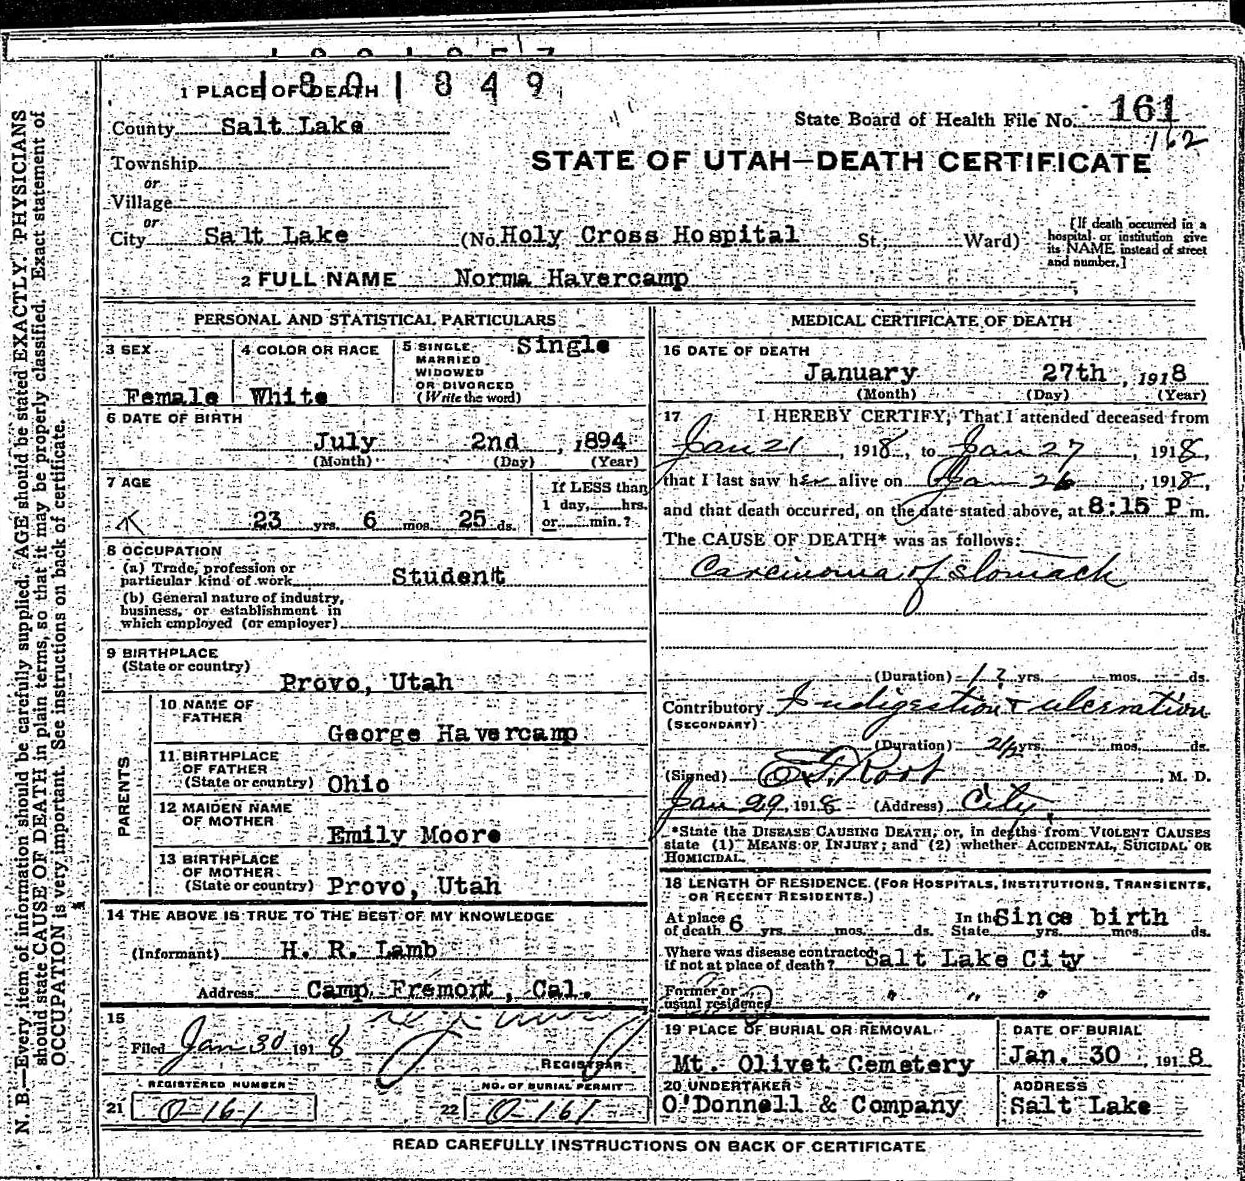 1801849
1 PLACE OF DEATH
County Salt Lake
State Board of Health File No. 161
162
Township
or
Village
or
STATE OF UTAH—DEATH CERTIFICATE
City Salt Lake (No. Holy Cross Hospital St.; Ward)
[If death occurred in a
hospital or institution give
its NAME instead of street
and number.]
2 FULL NAME Norma Havercamp
PERSONAL AND STATISTICAL PARTICULARS
3 SEX
Female
4 COLOR OR RACE
White
5 SINGLE
MARRIED
WIDOWED
OR DIVORCED
(Write the word)
Single
6 DATE OF BIRTH
July 2nd, 1894
(Month) (Day) (Year)
7 AGE
23 yrs. 6 mos. 25 ds.
If LESS than
1 day, hrs.
or min.?
8 OCCUPATION
(a) Trade, profession or
particular kind of work Student
(b) General nature of industry,
business, or establishment in
which employed (or employer)
9 BIRTHPLACE
(State or country)
Provo, Utah
PARENTS
10 NAME OF
FATHER
George Havercamp
11 BIRTHPLACE
OF FATHER
(State or country) Ohio
12 MAIDEN NAME
OF MOTHER
Emily Moore
13 BIRTHPLACE
OF MOTHER
(State or country) Provo, Utah
14 THE ABOVE IS TRUE TO THE BEST OF MY KNOWLEDGE
(Informant) H. R. Lamb
Address Camp Fremont, Cal.
15
Filed Jan 30 1918
REGISTRAR
REGISTERED NUMBER
21 0-161
NO. OF BURIAL PERMIT
22 0-161
MEDICAL CERTIFICATE OF DEATH
16 DATE OF DEATH
January 27th, 1918
(Month) (Day) (Year)
17 I HEREBY CERTIFY, That I attended deceased from
Jan 21, 1918, to Jan 27, 1918,
that I last saw her alive on Jan 26, 1918,
and that death occurred, on the date stated above, at 8:15 P m.
The CAUSE OF DEATH* was as follows:
Carcinoma of stomach
(Duration) 1 ? yrs. mos. ds.
Contributory Indigestion & ulceration
(SECONDARY)
(Duration) 2 1/2 yrs. mos. ds.
(Signed) E. F. Root, M. D.
Jan 29, 1918 (Address) City
*State the DISEASE CAUSING DEATH, or, in deaths from VIOLENT CAUSES
state (1) MEANS OF INJURY; and (2) whether ACCIDENTAL, SUICIDAL OR
HOMICIDAL.
18 LENGTH OF RESIDENCE (FOR HOSPITALS, INSTITUTIONS, TRANSIENTS,
OR RECENT RESIDENTS.)
At place
of death 6 yrs. mos. ds.
In the
State Since birth yrs. mos. ds.
Where was disease contracted
if not at place of death? Salt Lake City
Former or
usual residence " " "
19 PLACE OF BURIAL OR REMOVAL
Mt. Olivet Cemetery
DATE OF BURIAL
Jan. 30 1918
20 UNDERTAKER
O'Donnell & Company
ADDRESS
Salt Lake
READ CAREFULLY INSTRUCTIONS ON BACK OF CERTIFICATE
N. B.—Every item of information should be carefully supplied. AGE should be stated EXACTLY. PHYSICIANS
should state CAUSE OF DEATH in plain terms, so that it may be properly classified. Exact statement of
OCCUPATION is very important. See instructions on back of certificate.